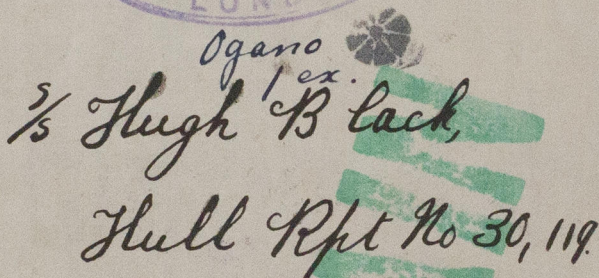 LOND
Ogano
1 ex.
s/s Hugh Black,
Hull Rpt No 30,119.